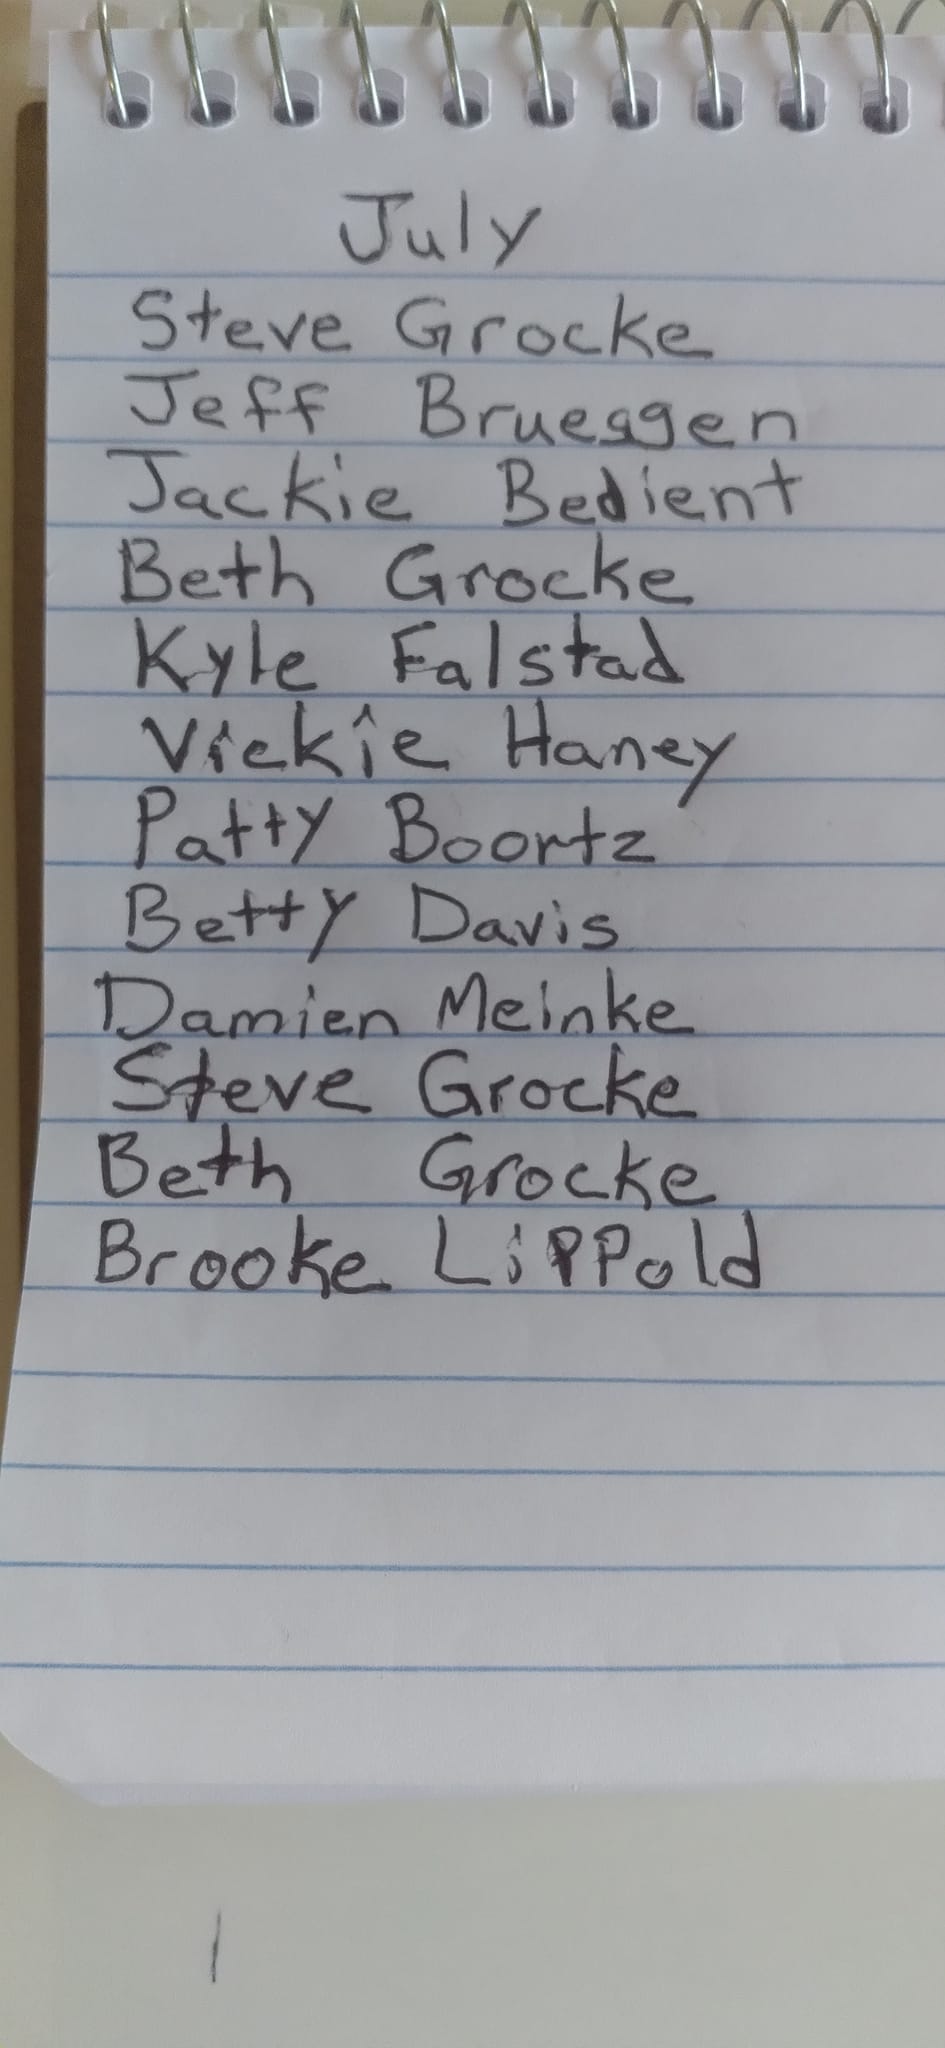 July
Steve Grocke
Jeff Brueggen
Jackie Bedient
Beth Grocke
Kyle Falstad
Vickie Haney
Patty Boortz
Betty Davis
Damien Meinke
Steve Grocke
Beth Grocke
Brooke Lippold